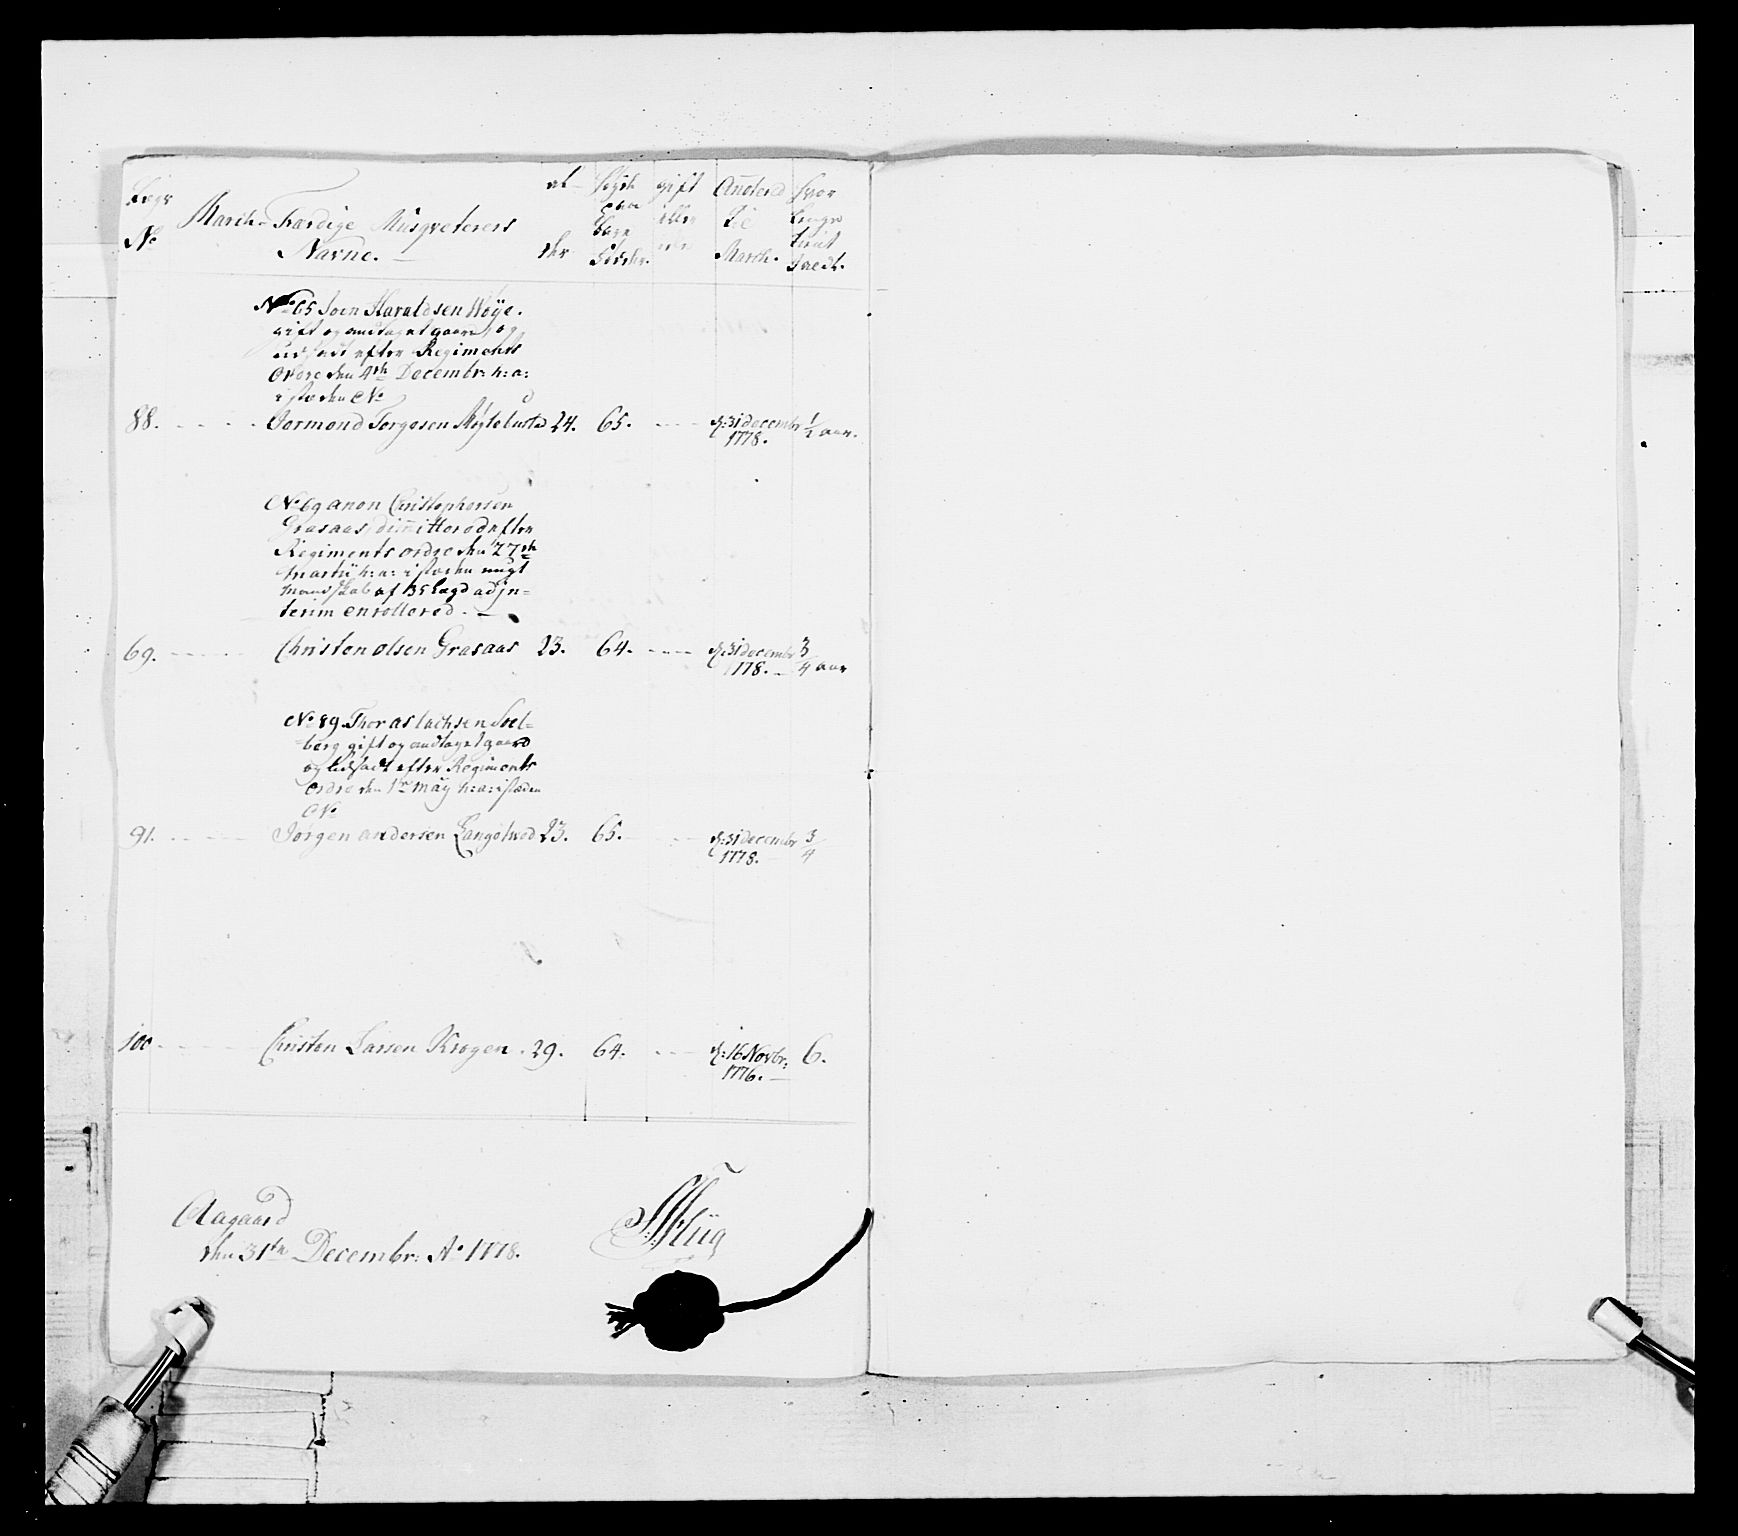 Lægs
No
March-Færdige Musqveterers
Navne.
al-
der
Høyde
Sko
Gift
eller
Anderd
te
March.
Hvor
Længe
tient
No 65 Joen Haraldsen Wøye.
gift og andtaget gaard, og
udsadt efter Regiments
Ordre den 4de Decembr: h: a:
i stæden No
88. Tormond Torgesen 24. 65. d: 31 decembr 1/2 aar.
1778.
No 69 anon Christophersen
Grasaas, dimitterod efter
Regiments ordre den 27de
Martii h: a: i stæden ungt
mandskab af 35 Lægd ad jn-
terim enrollered.
69. Christen olsen Grasaas 23. 64. d: 31 decembr 3/4 aar
1778.
No 89 Thor aslachsen Soel-
berg gift og andtaget gaard
og udsadt efter Regiments
Ordre den 1te May h: a: i stæden
No
91. Jørgen andersen 23. 65. d: 31 decembr 3/4
1778.
100 Christen Larsen Krogen. 29. 64. d: 16 Novbr: 6.
1776.
Aagaard
den 31te Decembr: Ao 1778.